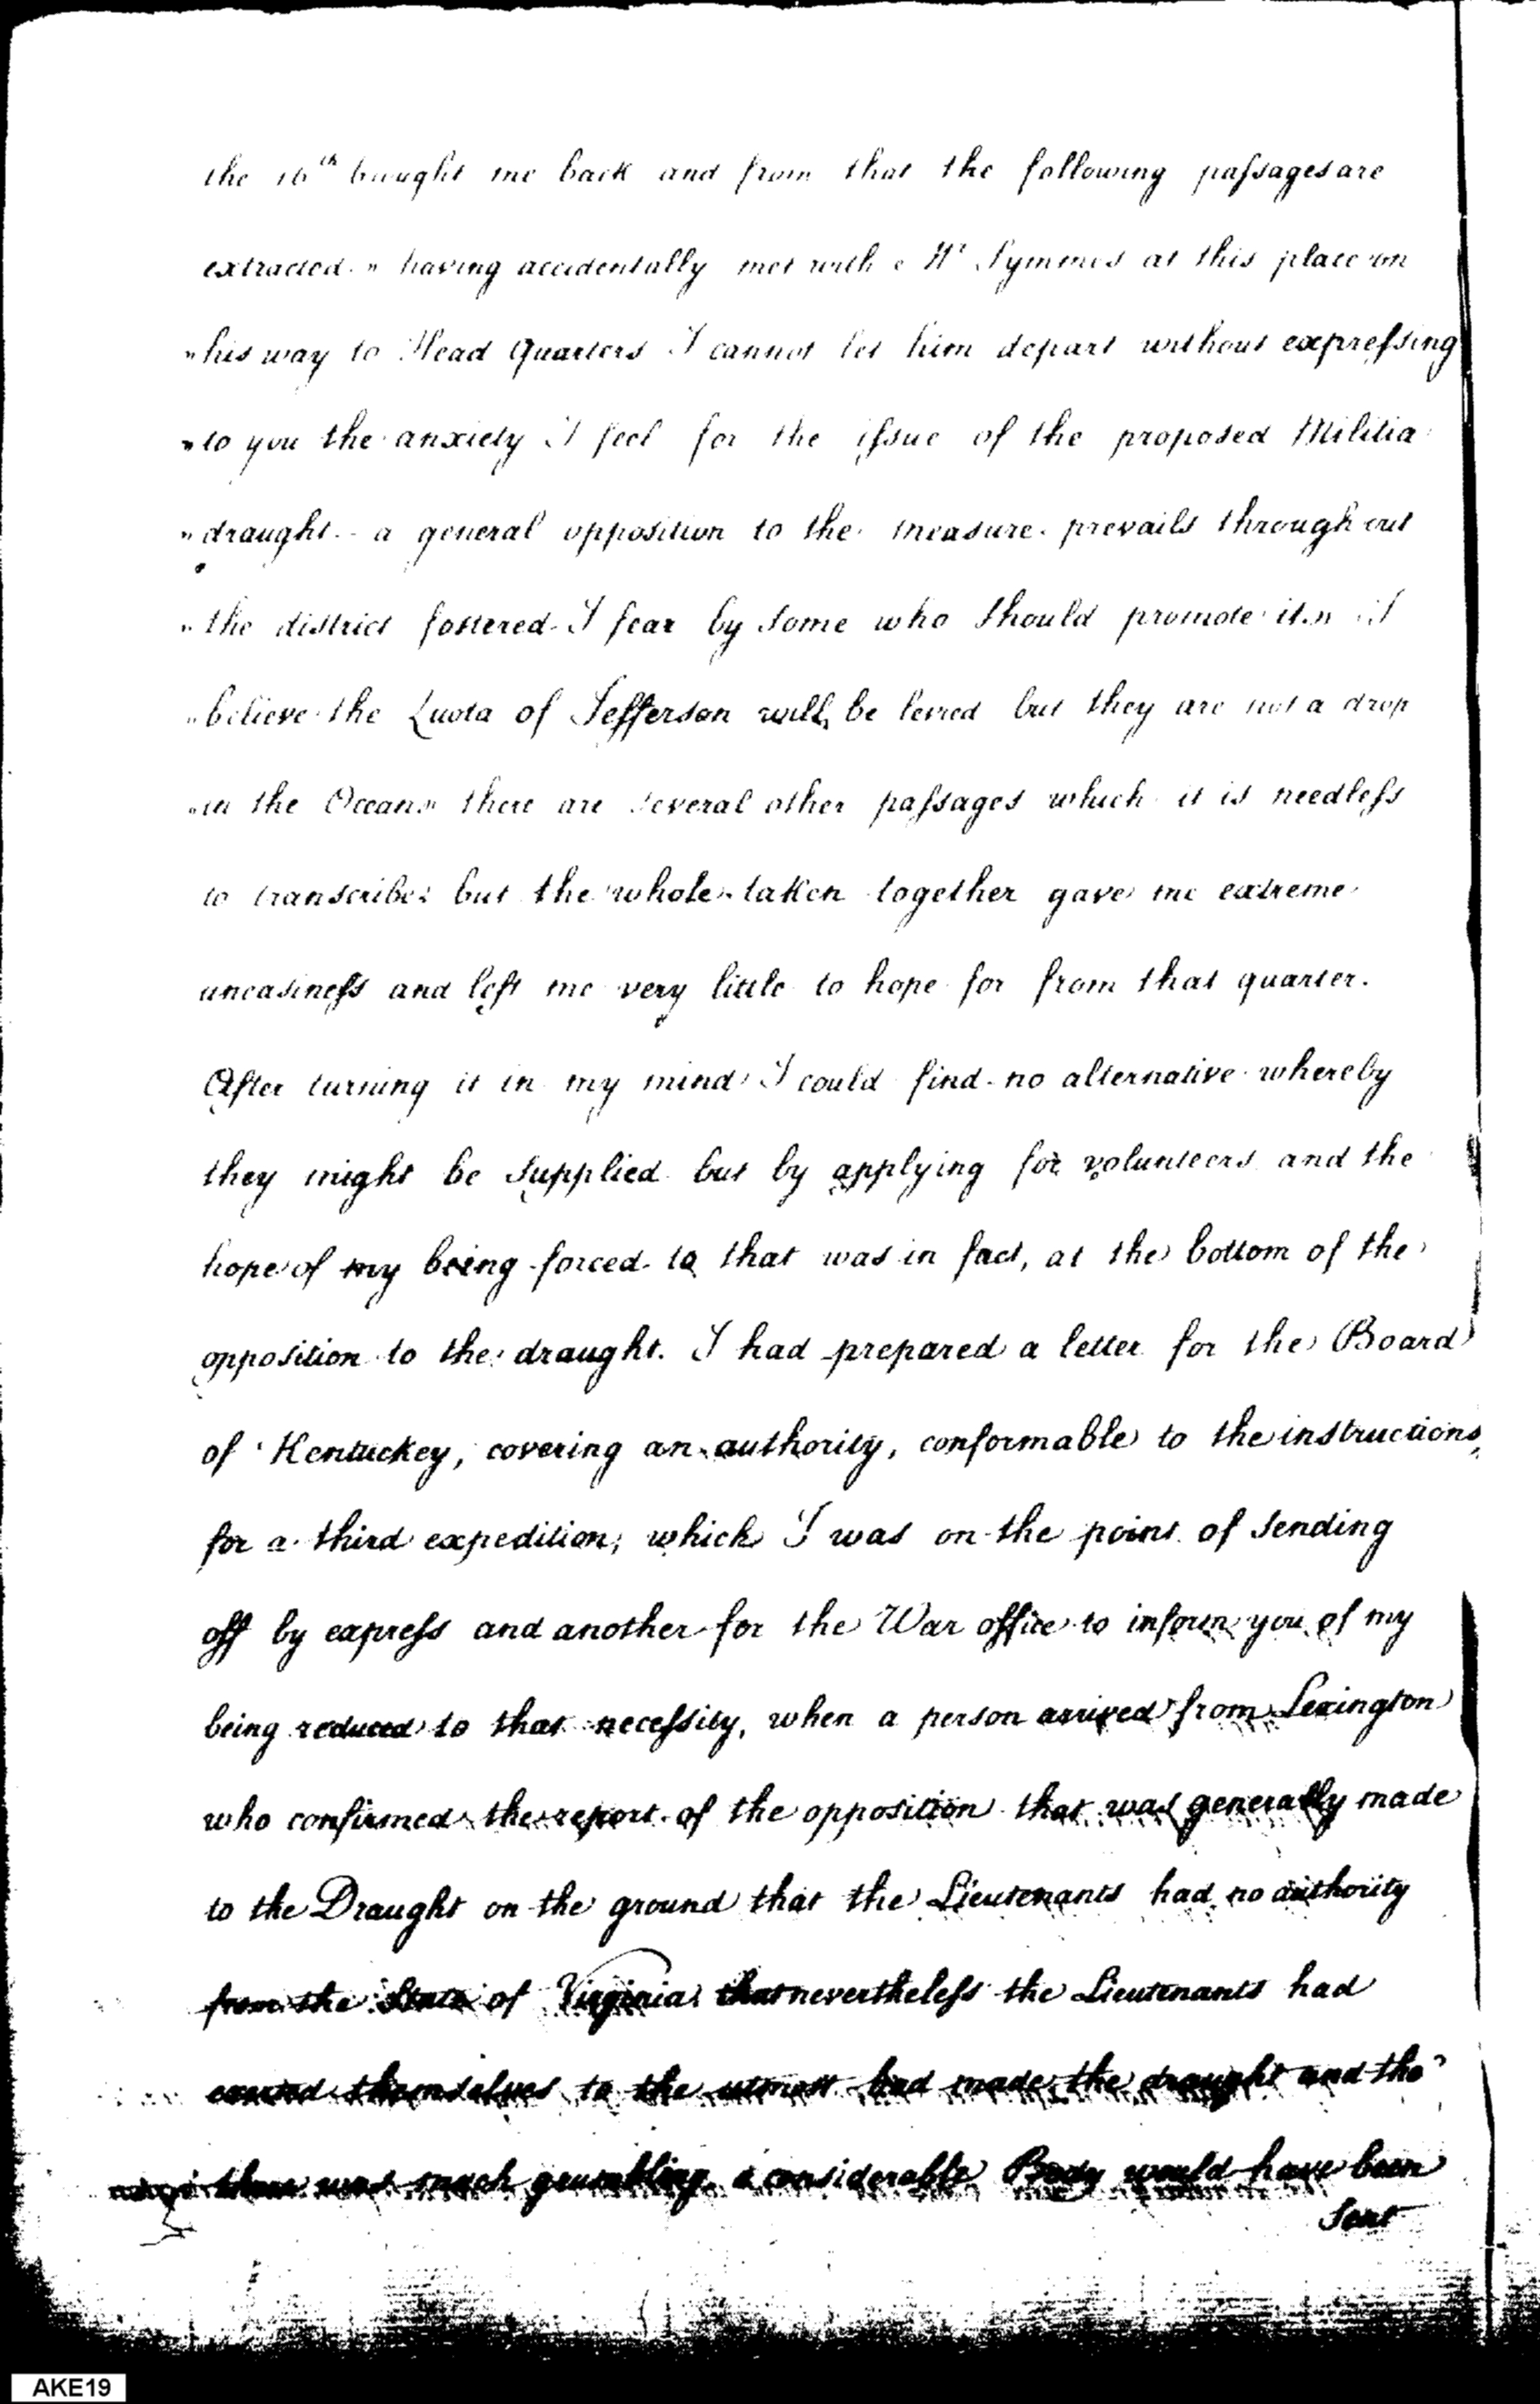 the 16th brought me back and from that the following passages are
extracted. " having accidentally met with Mr Symmes at this place on
" his way to Head Quarters I cannot let him depart without expressing
" to you the anxiety I feel for the issue of the proposed Militia
" draught. - a general opposition to the measure prevails throughout
" the district fostered I fear by some who should promote it. " I
" believe the Quota of Jefferson will be levied but they are not a drop
" in the Ocean " there are several other passages which it is needless
to transcribe: but the whole taken together gave me extreme
uneasiness and left me very little to hope for from that quarter.
After turning it in my mind I could find no alternative whereby
they might be supplied but by applying for volunteers and the
hope of my being forced to that was in fact, at the bottom of the
opposition to the draught. I had prepared a letter for the Board
of Kentuckey, covering an authority, conformable to the instructions,
for a third expedition; which I was on the point of sending
off by express and another for the War office to inform you of my
being reduced to that necessity, when a person arrived from Lexington
who confirmed the report of the opposition that was generally made
to the Draught on the ground that the Lieutenants had no authority
from the State of Virginia that nevertheless the Lieutenants had
exerted themselves to the utmost had made the draught and tho'
there was much grumbling a considerable Body would have been
sent
AKE19